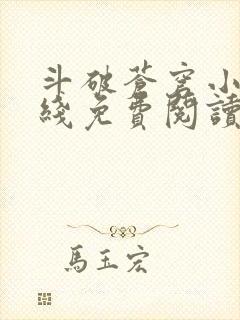 斗破苍穹小
綫免費閱讀
馬玉宏